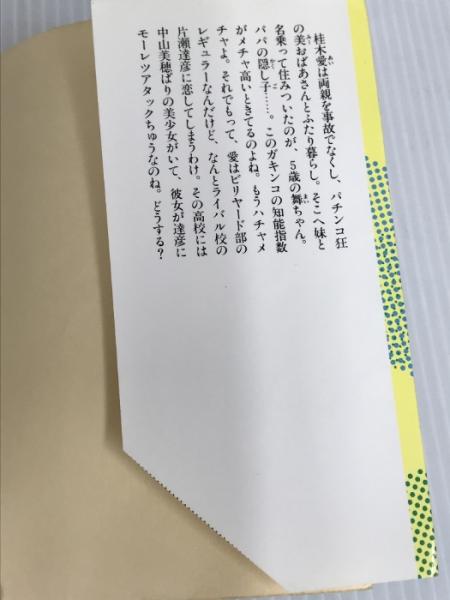 桂木愛は両親を事故でなくし、パチンコ狂
の美おばあさんとふたり暮らし。そこへ妹と
名乗って住みついたのが、5歳の舞ちゃん。
パパの隠し子……。このガキンコの知能指数
がメチャ高いときてるのよね。もうハチャメ
チャよ。それでもって、愛はビリヤード部の
レギュラーなんだけど、なんとライバル校の
片瀬達彦に恋してしまうわけ。その高校には
中山美穂ばりの美少女がいて、彼女が達彦に
モーレツアタックちゅうなのね。どうする?